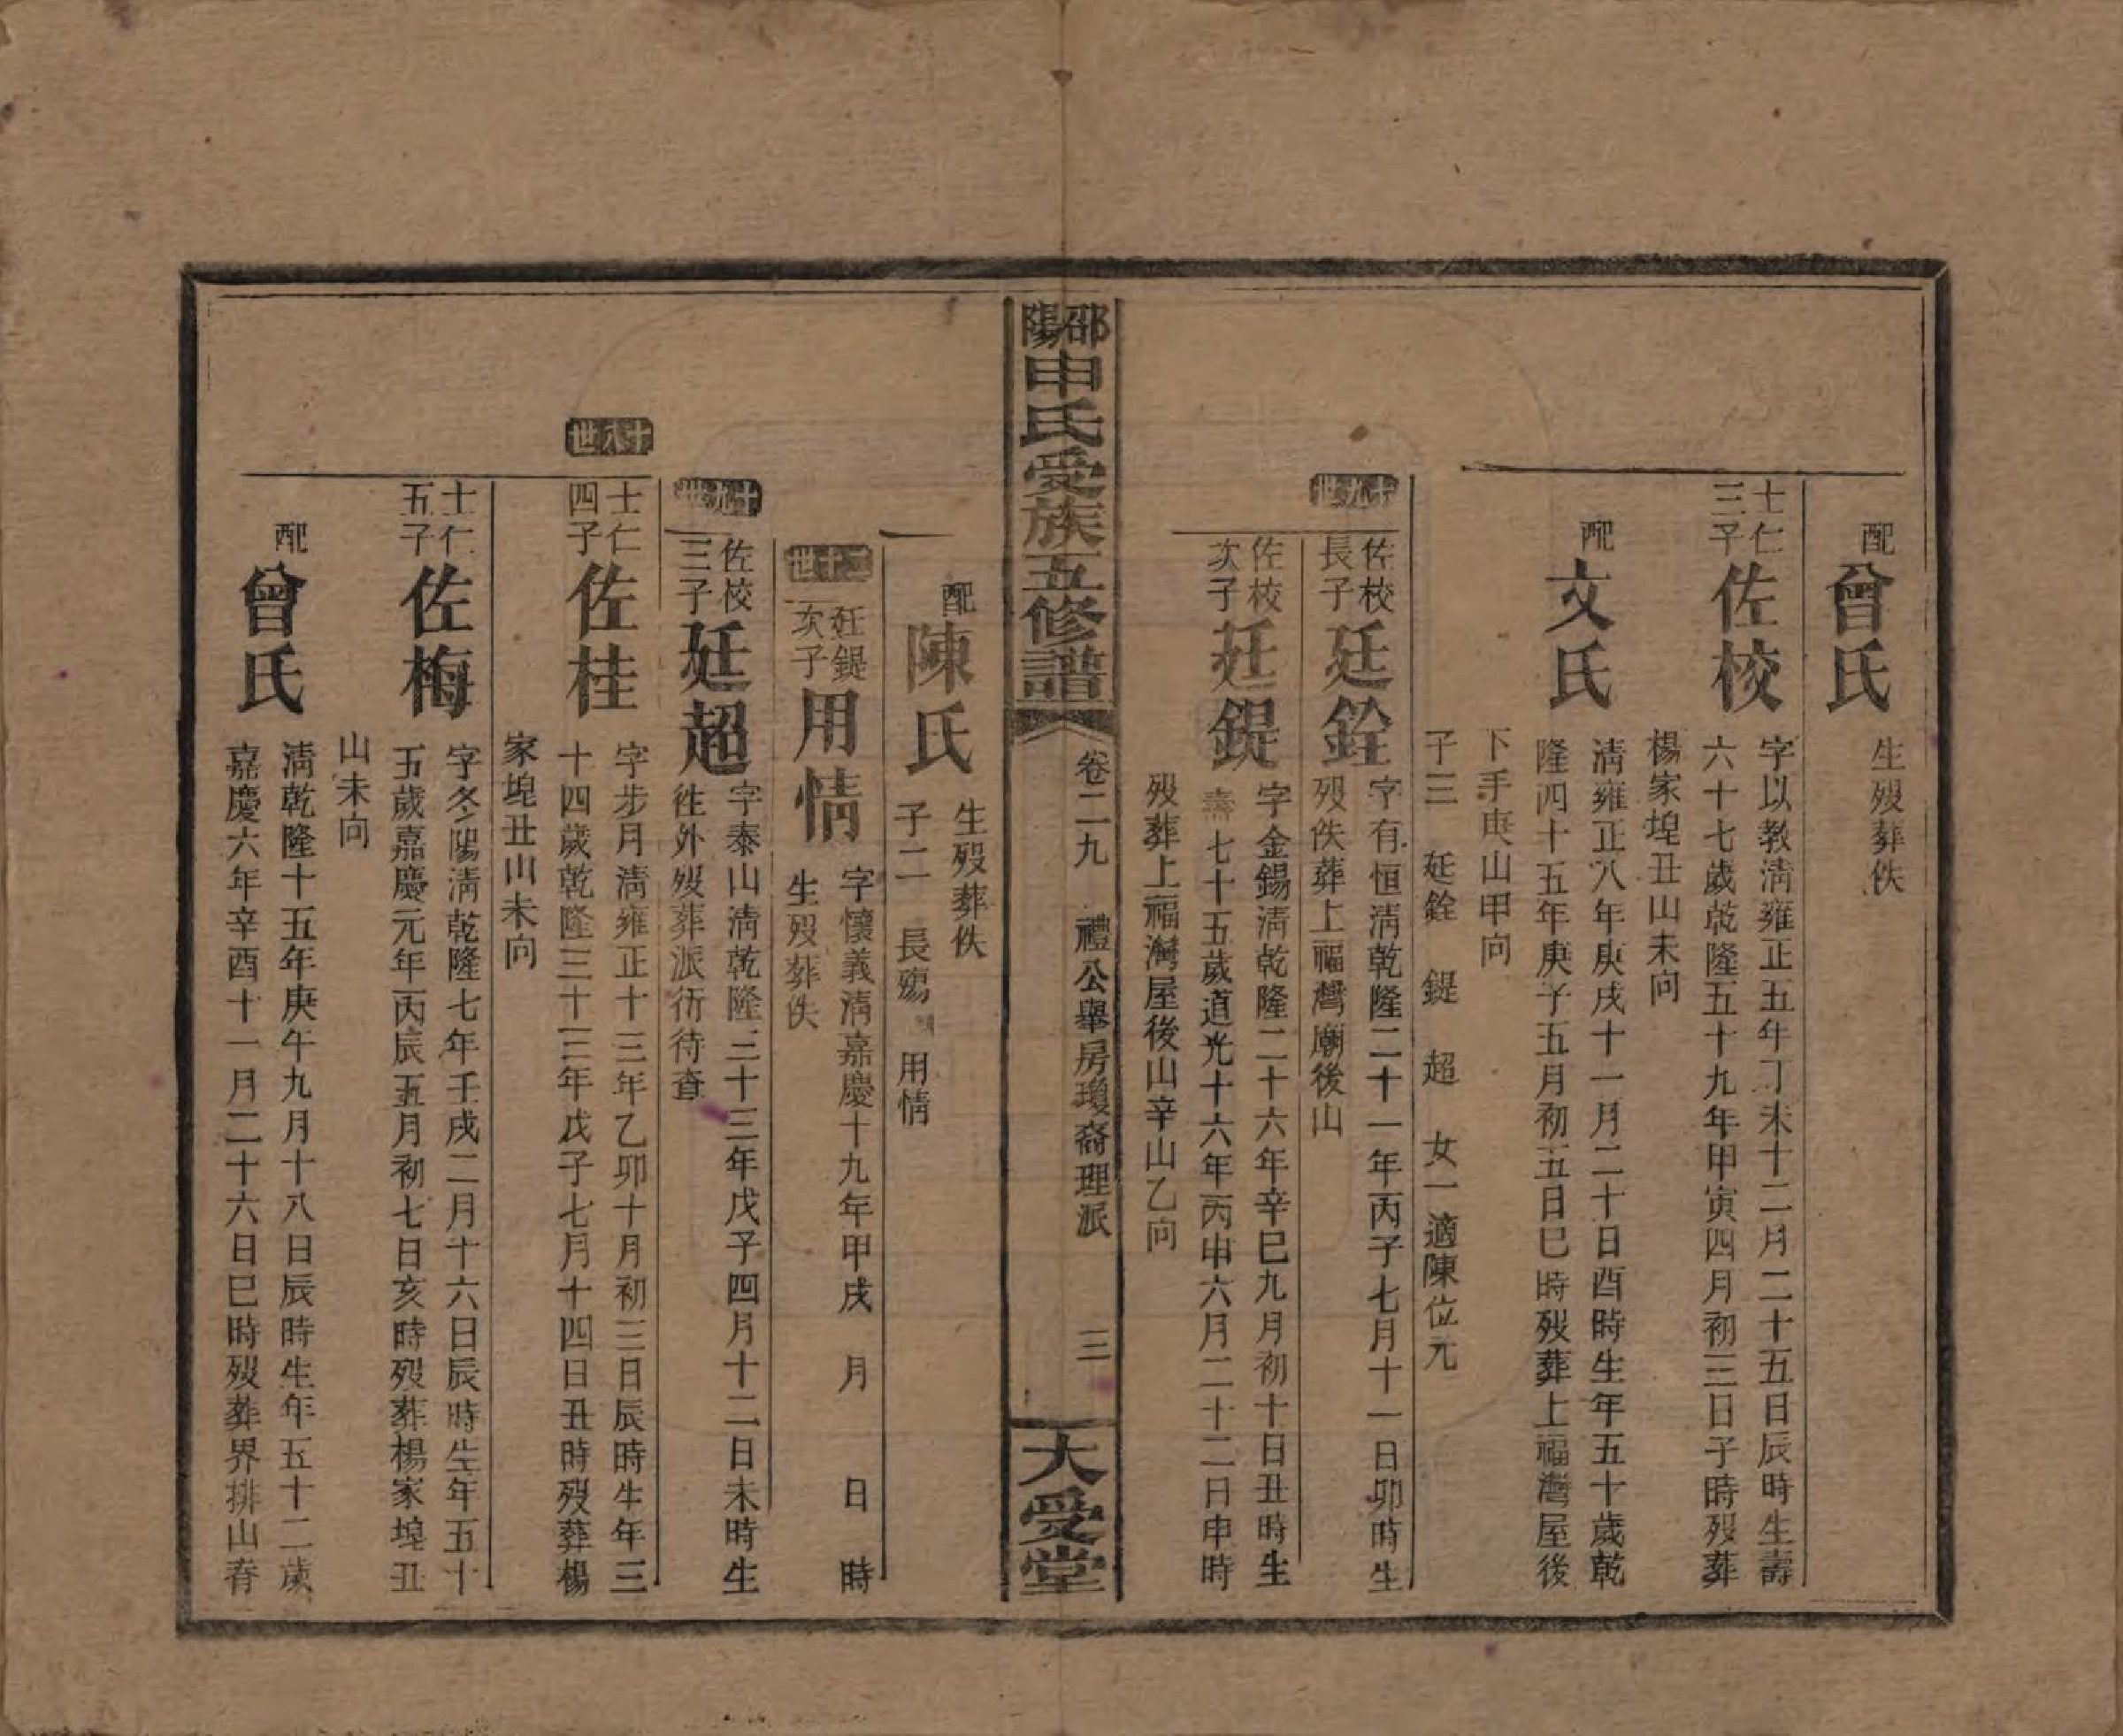 配
曾氏
生歿葬佚
士仁
三子
佐校
字以教淸雍正五年丁未十二月二十五日辰時生壽
六十七歲乾隆五十九年甲寅四月初三日子時歿葬
楊家塢丑山未向
配
文氏
淸雍正八年庚戌十一月二十日酉時生年五十歲乾
隆四十五年庚子五月初五日巳時歿葬上福灣屋後
下手庚山甲向
子三 廷銓 鍉 超 女一適陳位元
十九世
佐校
長子
廷銓
字有恒淸乾隆二十一年丙子七月十一日卯時生
歿佚葬上福灣廟後山
佐校
次子
廷鍉
字金錫淸乾隆二十六年辛巳九月初十日丑時生
壽七十五歲道光十六年丙申六月二十二日申時
歿葬上福灣屋後山辛山乙向
邵陽
申氏受族五修譜
卷二九 禮公舉房瓊裔理派 三
大受堂
配
陳氏
生歿葬佚
子二 長殤 用情
二十世
廷鍉
次子
用情
字懷義淸嘉慶十九年甲戌 月 日 時
生歿葬佚
十九世
佐校
三子
廷超
字泰山淸乾隆三十三年戊子四月十二日未時生
徃外歿葬派衍待查
十八世
士仁
四子
佐桂
字步月淸雍正十三年乙卯十月初三日辰時生年三
十四歲乾隆三十三年戊子七月十四日丑時歿葬楊
家塢丑山未向
士仁
五子
佐梅
字冬陽淸乾隆七年壬戌二月十六日辰時生年五十
五歲嘉慶元年丙辰五月初七日亥時歿葬楊家塢丑
山未向
配
曾氏
淸乾隆十五年庚午九月十八日辰時生年五十二歲
嘉慶六年辛酉十一月二十六日巳時歿葬界排山脊